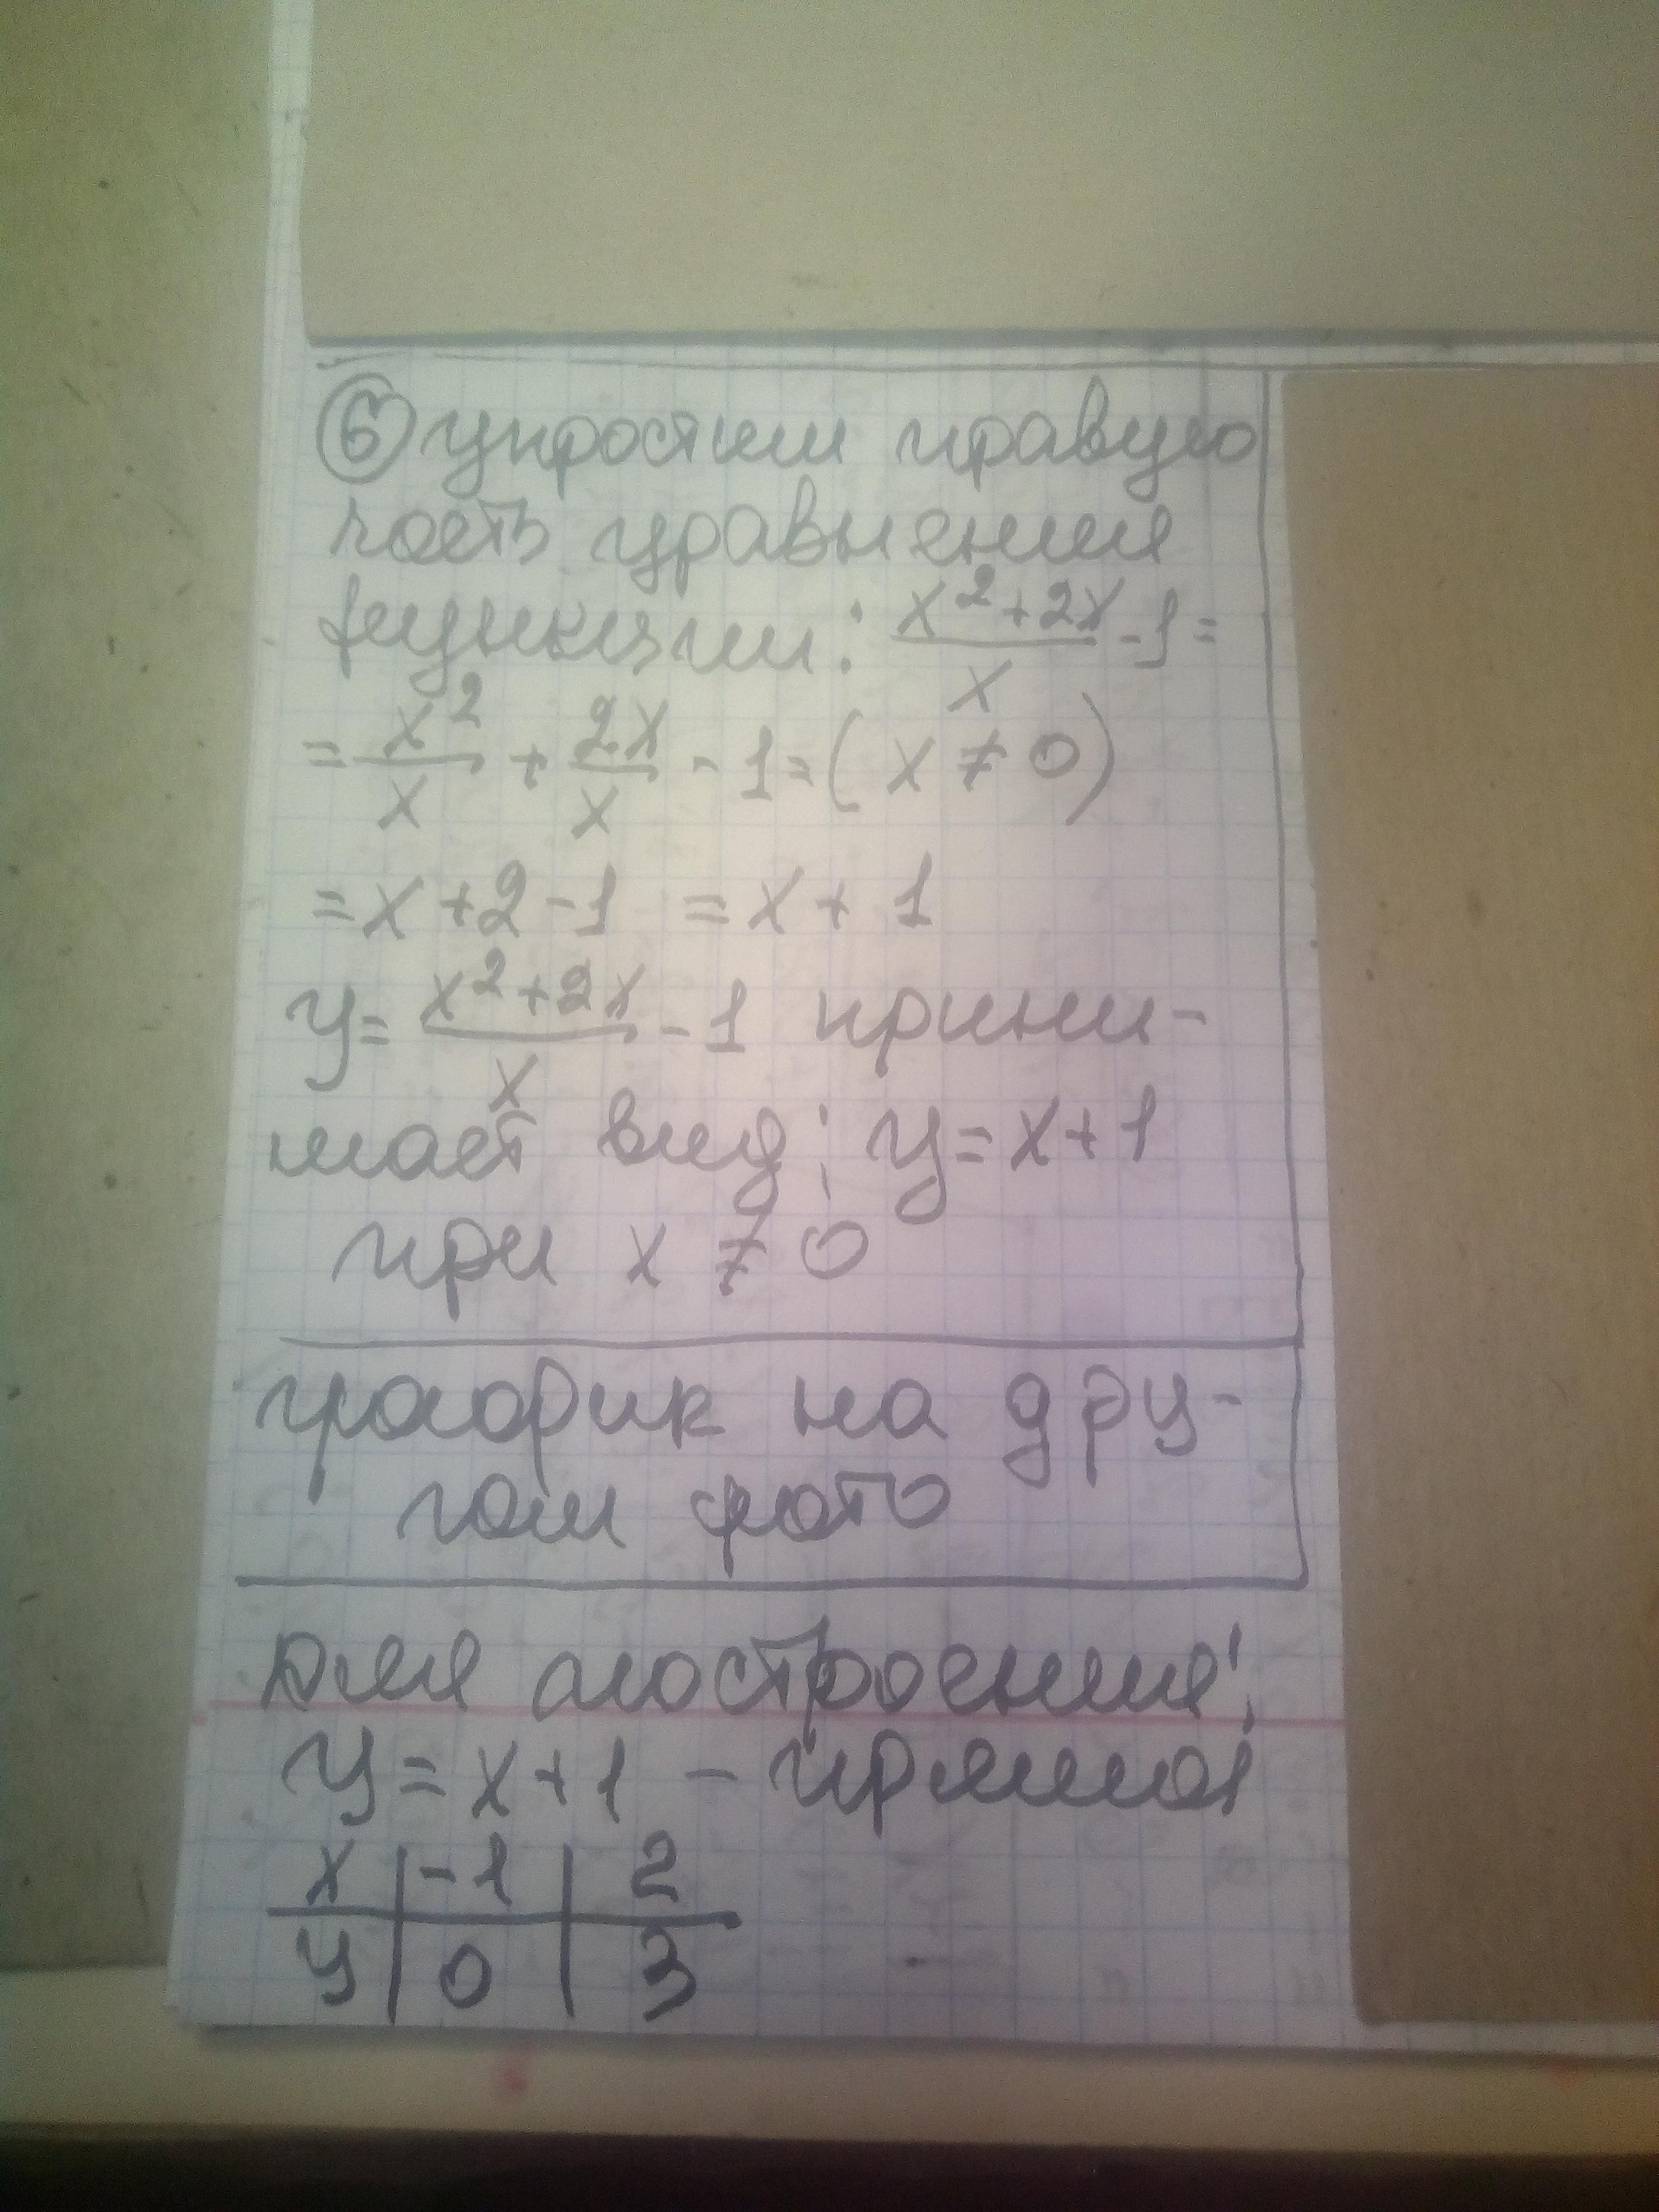 6 упростим правую
часть уравнения
функции: x²+2x/x - 1 =
= x²/x + 2x/x - 1 = (x ≠ 0)
= x + 2 - 1 = x + 1
y = x²+2x/x - 1 прини-
мает вид: y = x + 1
при x ≠ 0
график на дру-
гом фото
для построения:
y = x + 1 - прямая
x | -1 | 2
y | 0 | 3